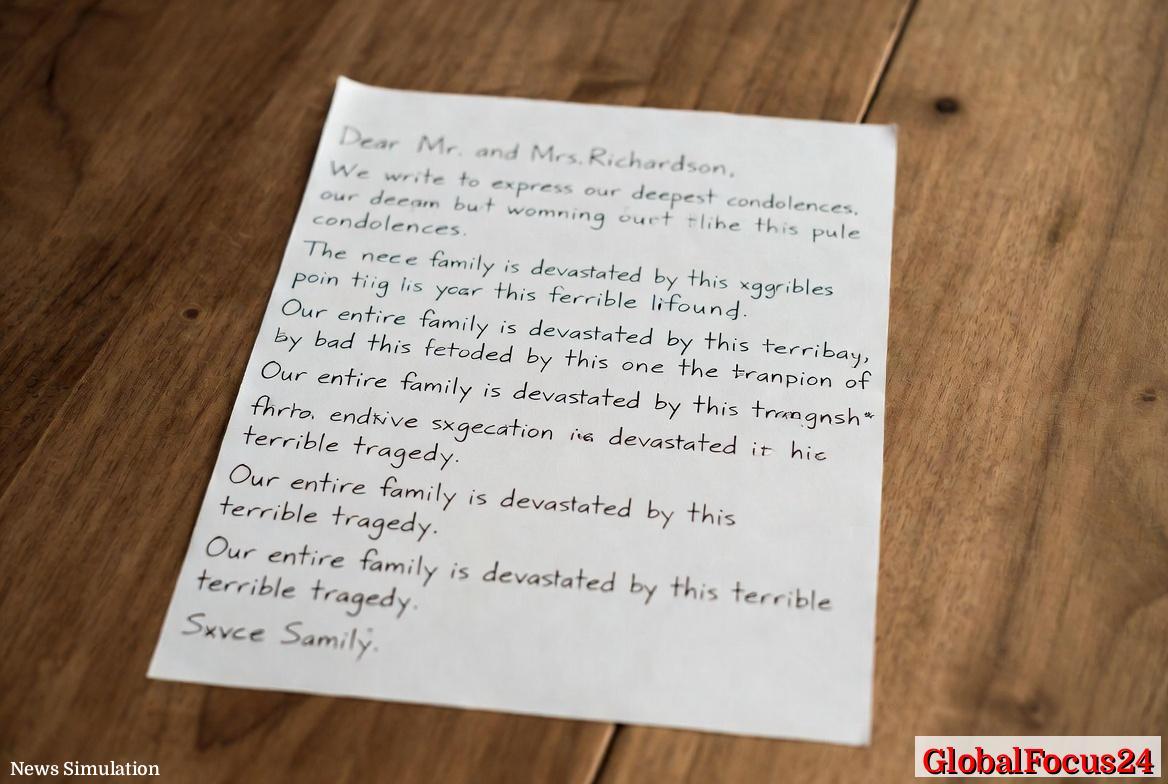 Dear Mr. and Mrs. Richardson,
We write to express our deepest condolences.
our deeam but womning ourt this pule
condolences.
The nece family is devastated by this xggribles
poin tiig lis year this ferrible lifound.
Our entire family is devastated by this terribay,
by bad this fetoded by this one the tranpion of
Our entire family is devastated by this
fhrto. endxive sxgecation devastated it hic
terrible tragedy.
Our entire family is devastated by this
terrible tragedy.
Our entire family is devastated by this terrible
terrible tragedy.
Sxvce Samily.
News Simulation
GlobalFocus24